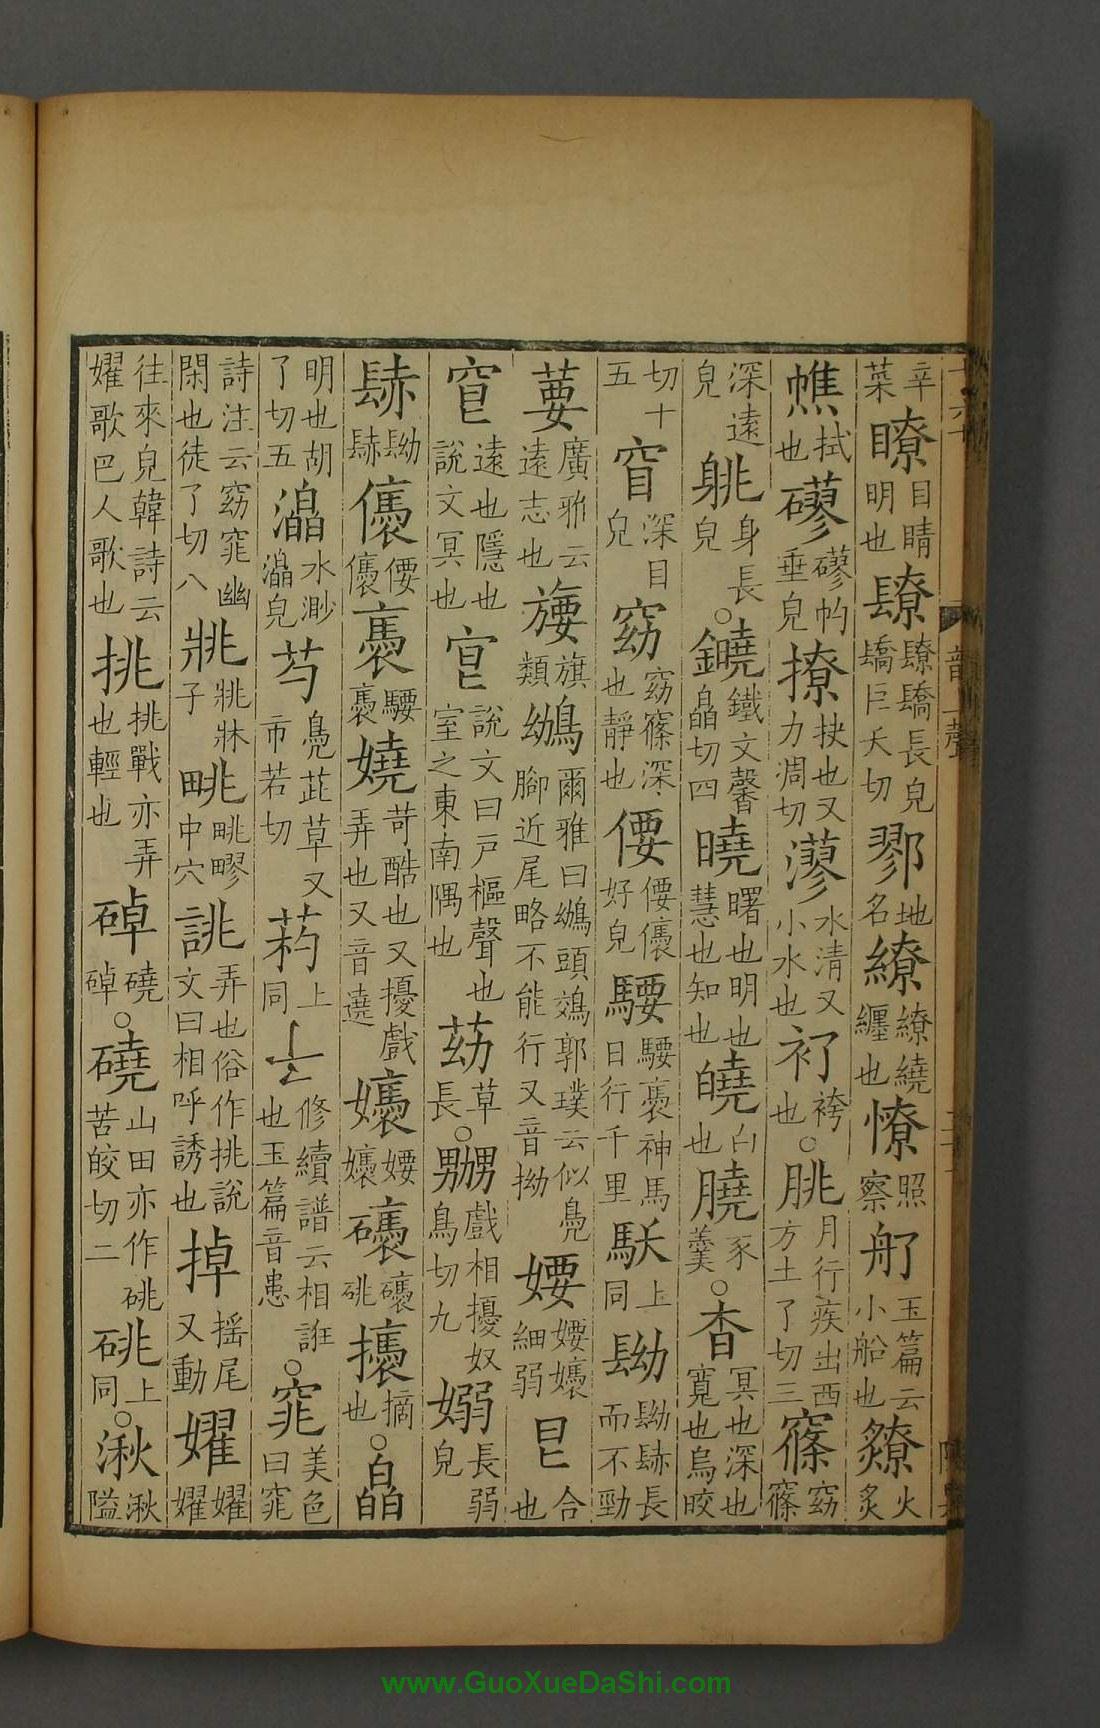 辛菜瞭目睛明也镽镽𨲭長皃𨲭巨夭切鄝地名繚繚繞纏也憭照察舠玉篇云小船也爒火炙
憔拭也磟磟䂩垂皃撩抉也又力凋切漻水清又小水也衦袴也○朓月行疾出西方土了切三窱窈窱
深遠皃䠷身長皃○鐃鐵文馨皛切四曉曙也明也慧也知也皢白也膮豕羹○杳冥也深也寬也烏皎
切十五窅深目皃窈窈窱深也靜也偠偠㒟好皃騕騕褭神馬日行千里𩡯上同镺镺长而不勁
葽廣雅云遠志也旗類鴢爾雅曰鴢頭鵁郭璞云似鳧腳近尾略不能行又音拗婹婹嬝細弱㫐合也
窅遠也隱也說文冥也㝔說文曰戶樞聲也室之東南隅也苭草長○嬲戲相擾奴鳥切九嫋長弱皃
㒟偠㒟褭騕褭嬈苛酷也又擾戲弄也又音遶嬝婹嬝摘也○皛
明也胡了切五灟水渺皃芍鳧茈草又市若切葯上同修續譜云相誑也玉篇音患○窕美色曰窕
詩注云窈窕幽閑也徒了切八㸠㸠牀子䠷誂弄也俗作挑說文曰相呼誘也掉搖尾又動嬥嬥
往來皃韓詩云嬥歌巴人歌也挑挑戰亦弄也輕也䂽○磽山田亦作䂪苦皎切二䂪上同○湫湫隘